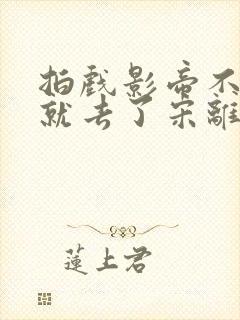 拍戲影帝不
就去了宋離
蓮上君